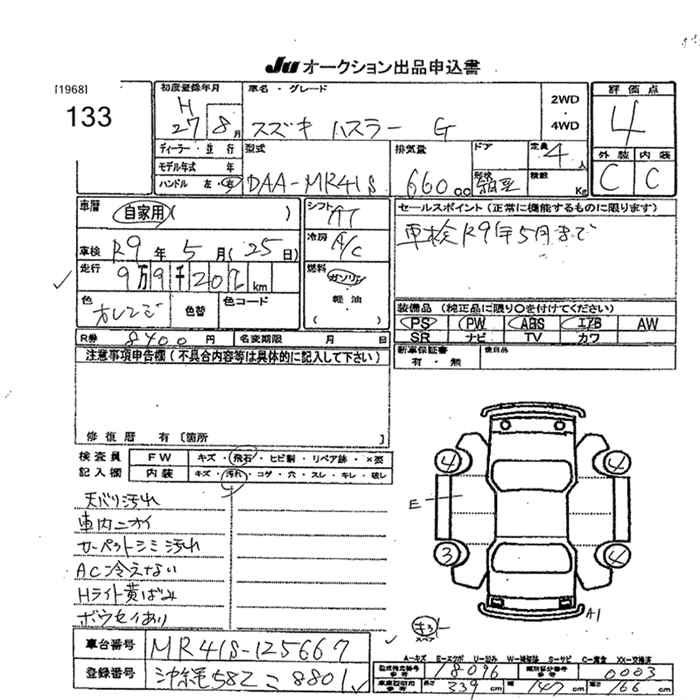 JU オークション出品申込書
[1968]
133
初度登録年月
H
27 8月
車名・グレード
スズキ ハスラー G
2WD
・
4WD
評価点
4
ディーラー・並行
モデル年式 年
ハンドル 左・右
型式
DAA-MR41S
排気量
660cc
ドア
形状
定員
4人
積載
Kg
外装 内装
C C
車歴
自家用( )
シフト
AT
セールスポイント(正常に機能するものに限ります)
車検R9年5月まで
車検 R9年 5月(25日)
冷房
A/C
走行
9万9千202km
燃料
ガソリン
・
軽油
( )
色
オレンジ
色替
色コード
装備品(純正品に限り○を付けてください)
PS PW ABS エアB AW
SR ナビ TV カワ
R券 8400円
名変期限 月 日
新車保証書
有・無
後日品
注意事項申告欄(不具合内容等は具体的に記入して下さい)
修復歴 有〔箇所 〕
検査員
記入欄
FW キズ・飛石・ヒビ割・リペア跡・×要
内装 キズ・汚れ・コゲ・穴・スレ・キレ・破レ
天バリ汚れ
車内ニオイ
カーペットシミ汚れ
AC冷えない
Hライト黄ばみ
ボウセイあり
4 4
E
3 4
A1
スペア
A-キズ E-エクボ U-凹み W-補修跡 S-サビ C-腐食 XX-交換済
車台番号 MR41S-125667
登録番号 沖縄582こ8801
型式指定番号 18096 類別区分番号 0003
長 339cm 幅 147cm 高 166cm